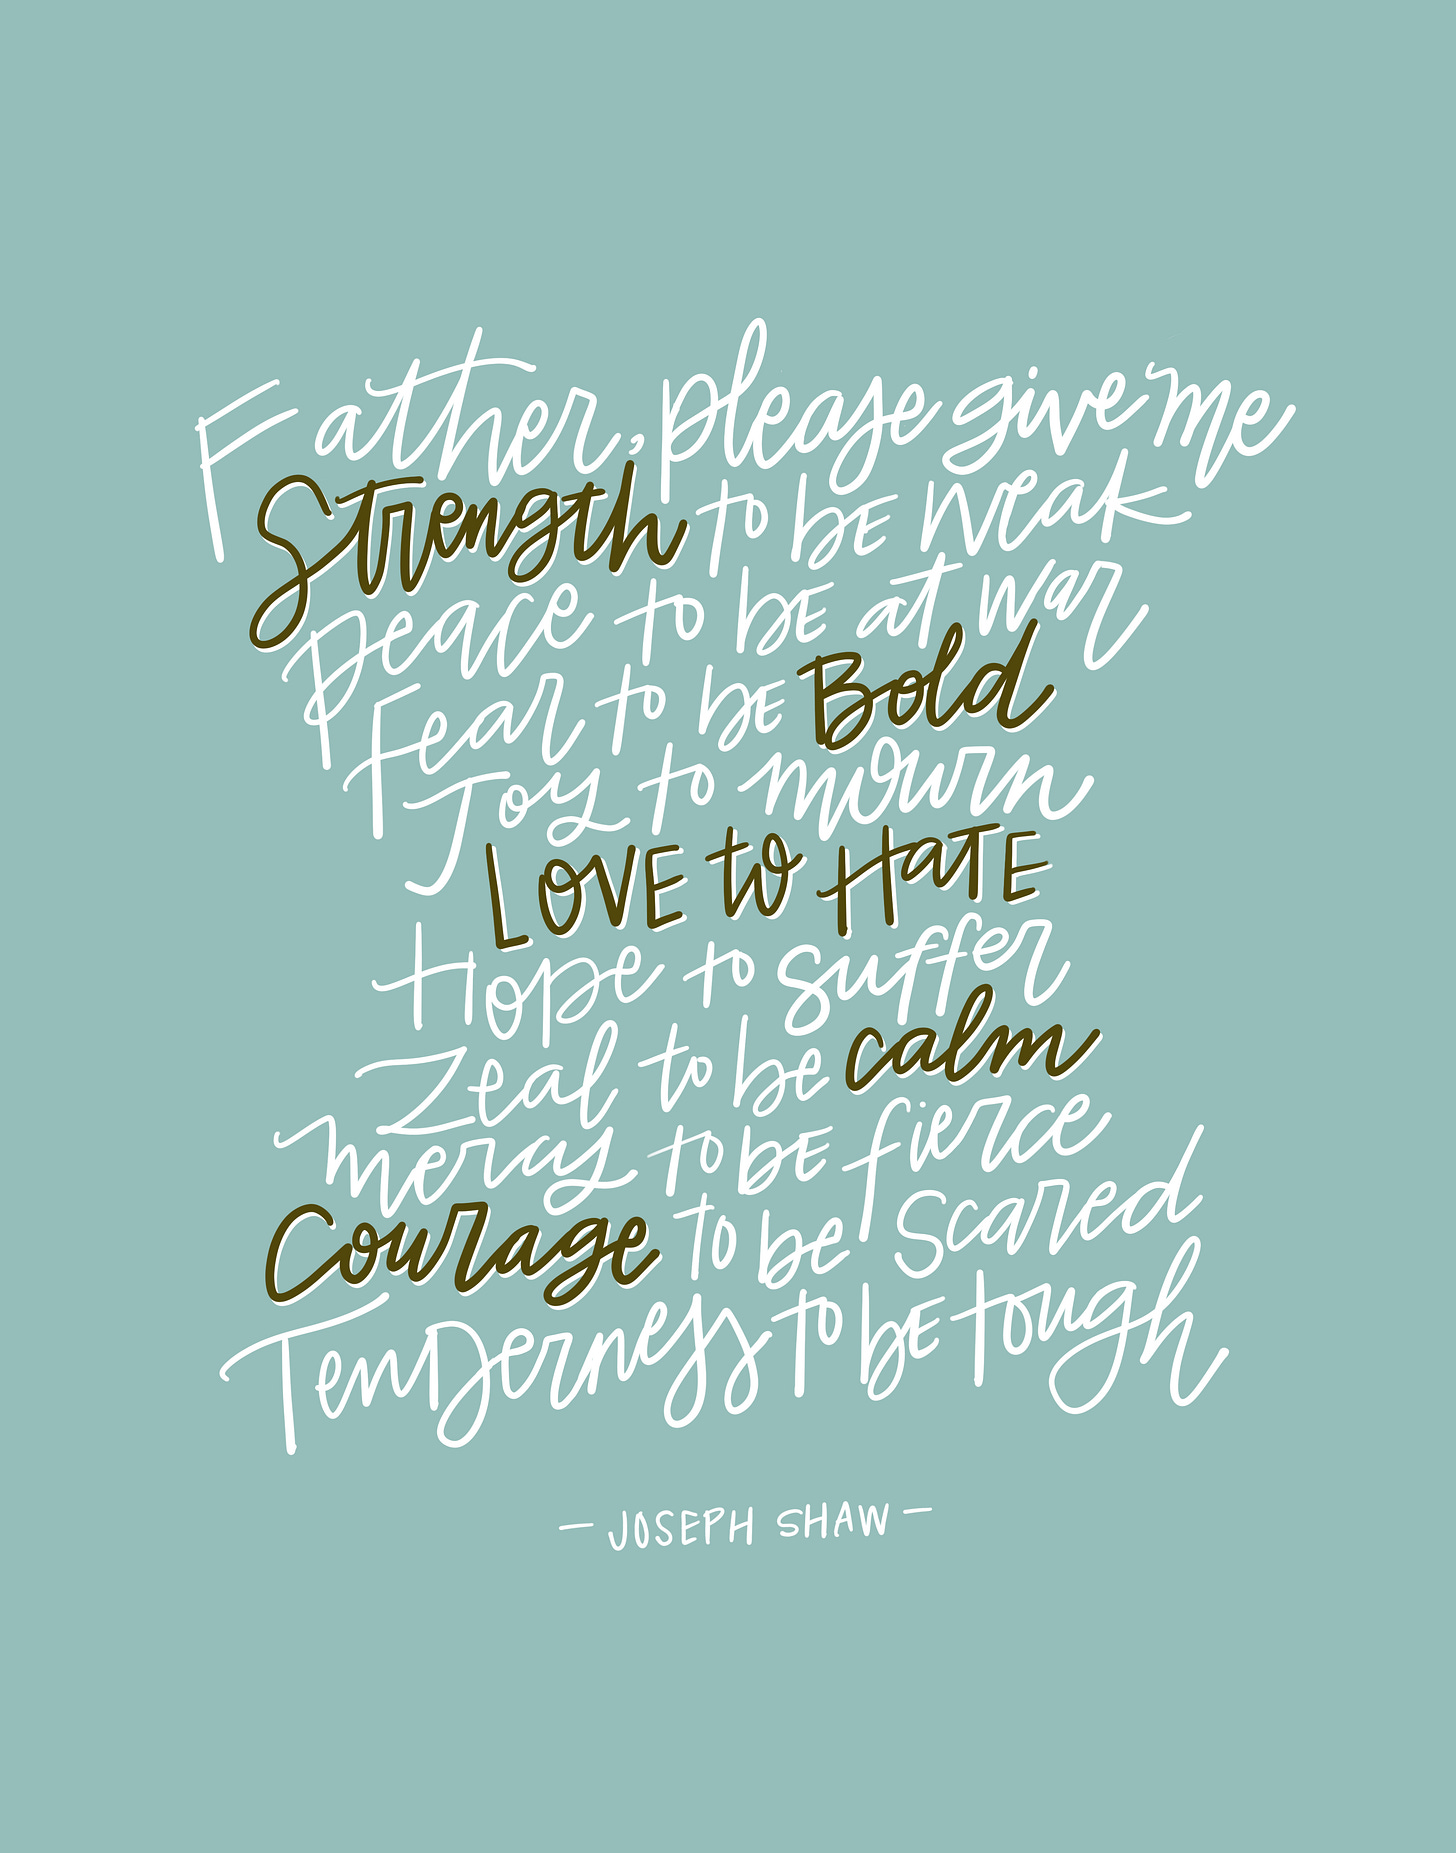 Father, please give me
Strength to be weak
Peace to be at war
Fear to be Bold
Joy to mourn
LOVE to HaTE
Hope to suffer
Zeal to be calm
mercy to be fierce
Courage to be Scared
Tenderness to be tough
— JOSEPH SHAW —